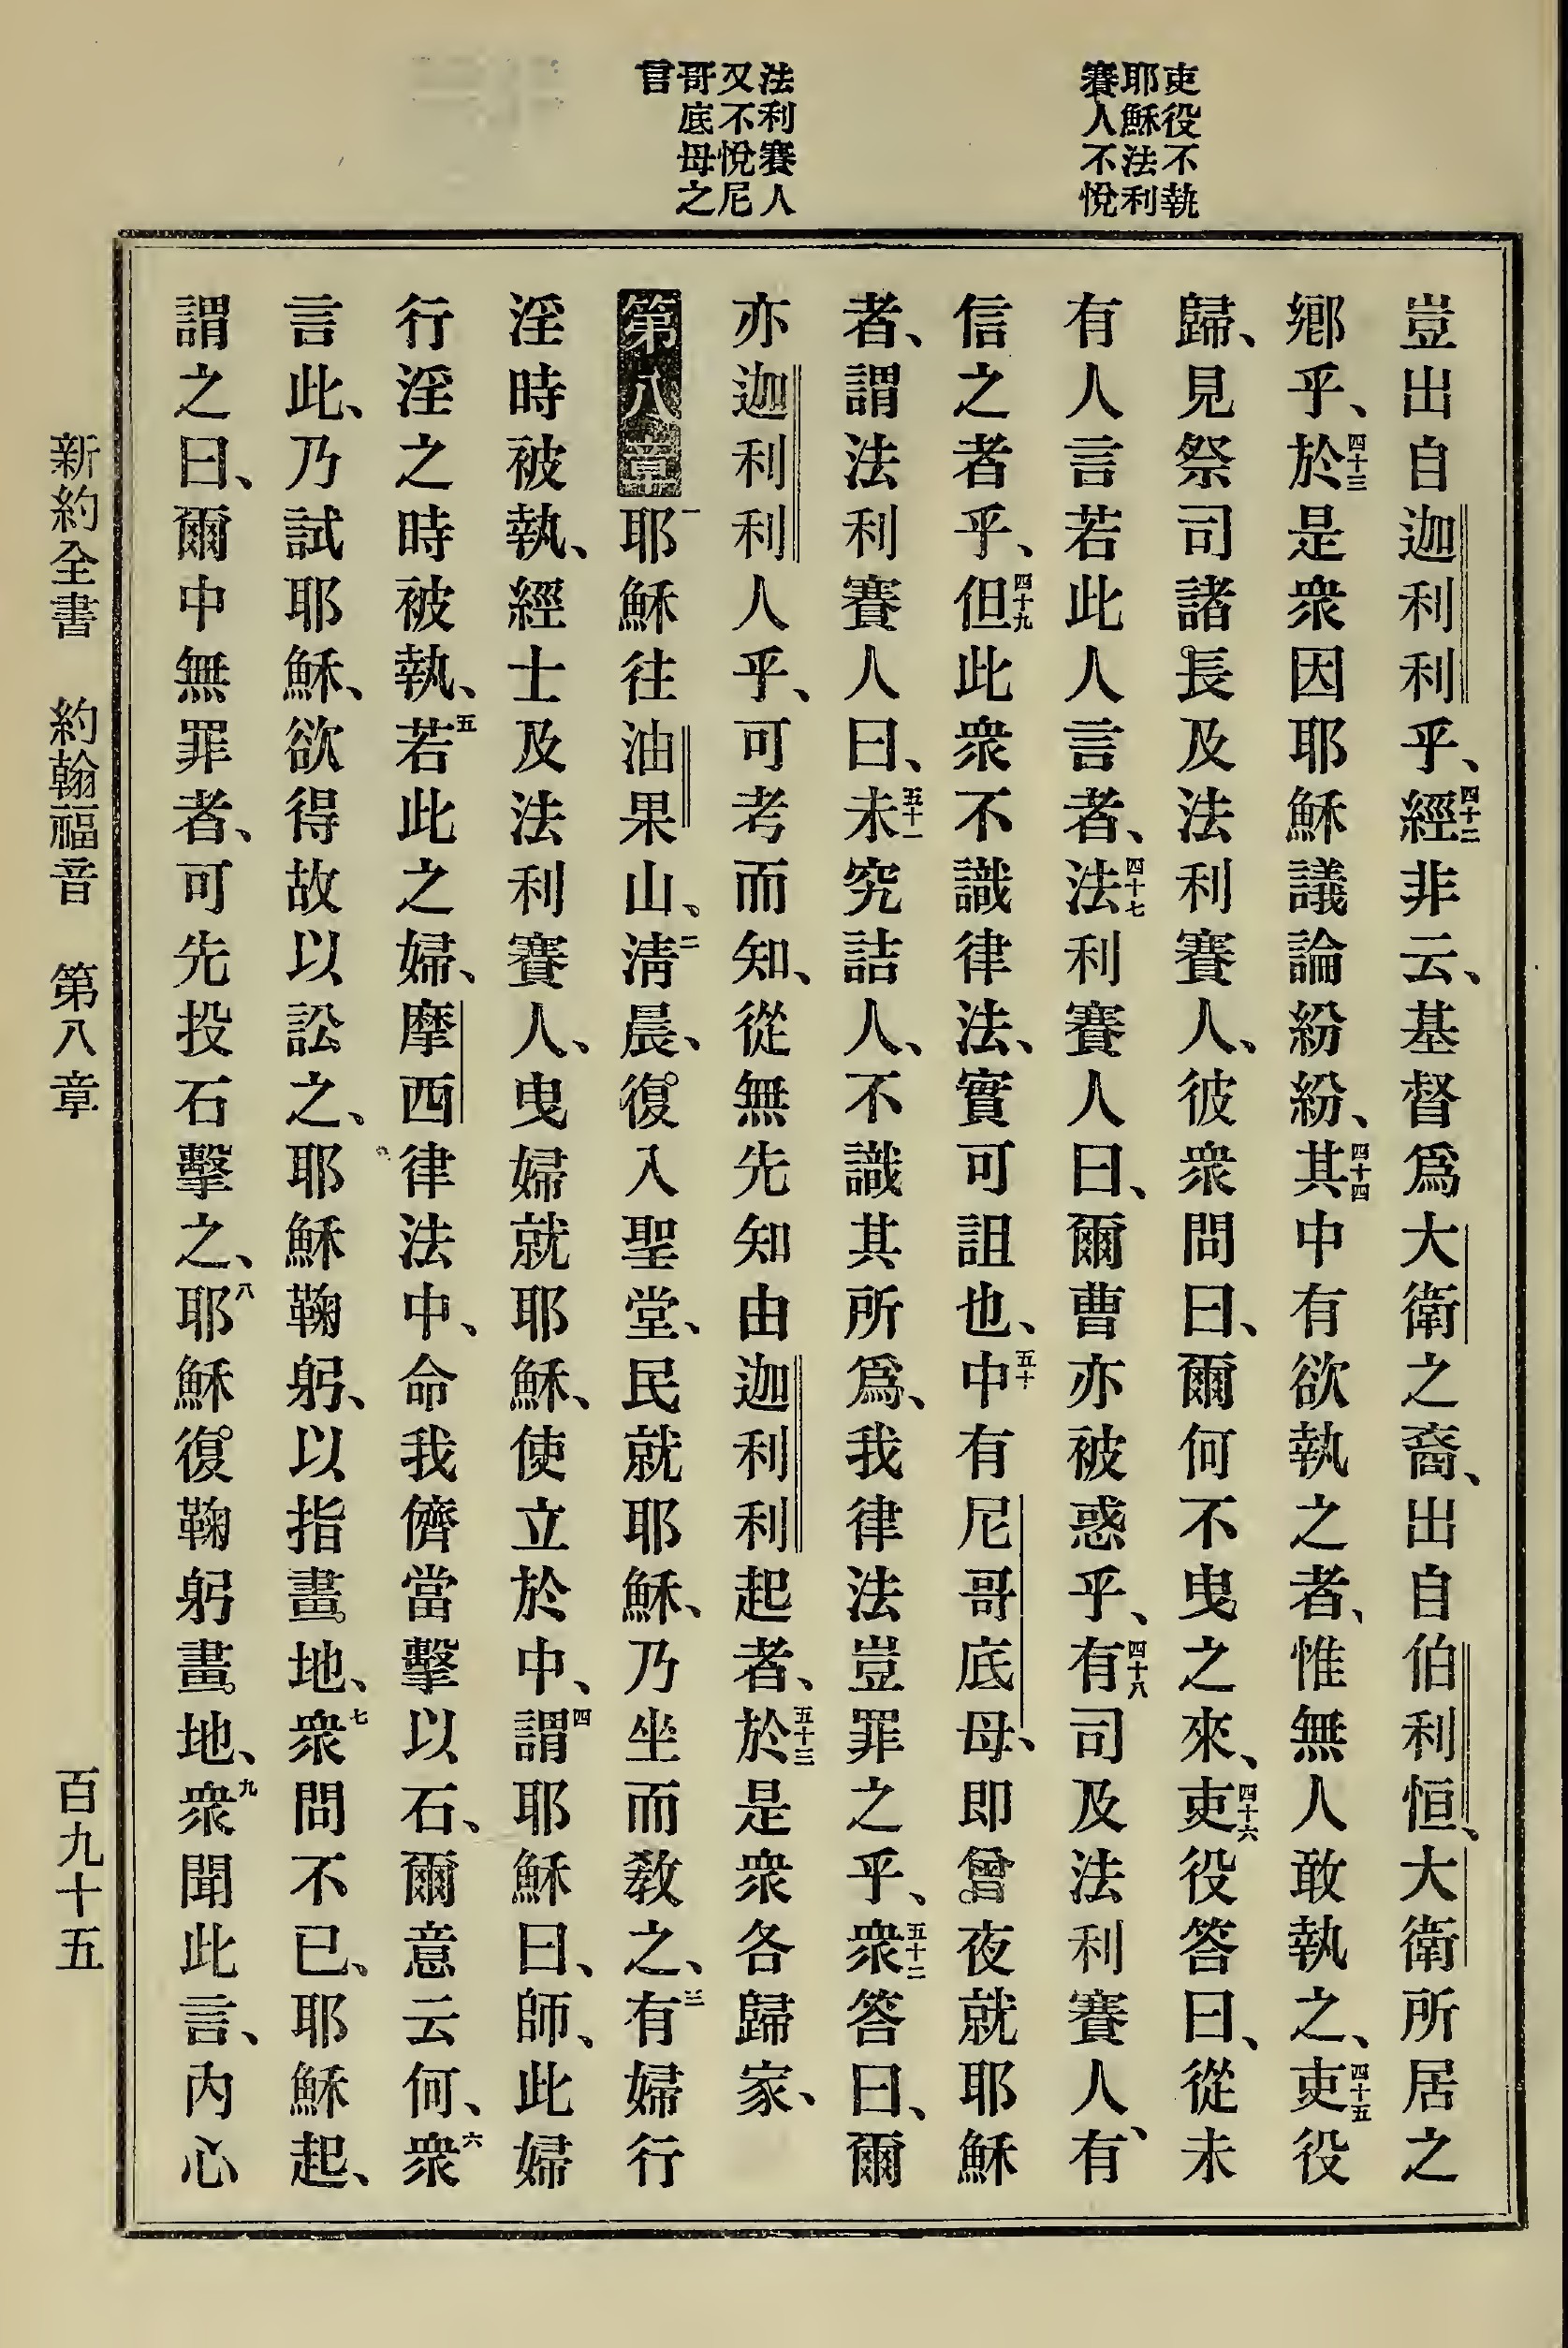 吏役不執
耶穌法利
賽人不悅
法利賽人
又不悅尼
哥底母之
言
豈出自迦利利乎、四十二經非云、基督爲大衛之裔、出自伯利恒、大衛所居之
鄉乎、四十三於是衆因耶穌議論紛紛、四十四其中有欲執之者、惟無人敢執之、四十五吏役
歸、見祭司諸長及法利賽人、彼衆問曰、爾何不曳之來、四十六吏役答曰、從未
有人言若此人言者、四十七法利賽人曰、爾曹亦被惑乎、四十八有司及法利賽人、有
信之者乎、四十九但此衆不識律法、實可詛也、五十中有尼哥底母、即曾夜就耶穌
者、謂法利賽人曰、五十一未究詰人、不識其所爲、我律法豈罪之乎、五十二衆答曰、爾
亦迦利利人乎、可考而知、從無先知由迦利利起者、五十三於是衆各歸家、
第八章 一耶穌往油果山、二淸晨、復入聖堂、民就耶穌、乃坐而敎之、三有婦行
淫時被執、經士及法利賽人、曳婦就耶穌、使立於中、四謂耶穌曰、師、此婦
行淫之時被執、五若此之婦、摩西律法中、命我儕當擊以石、爾意云何、六衆
言此、乃試耶穌、欲得故以訟之、耶穌鞠躬、以指畫地、七衆問不已、耶穌起、
謂之曰、爾中無罪者、可先投石擊之、八耶穌復鞠躬畫地、九衆聞此言、內心
新約全書 約翰福音 第八章 百九十五